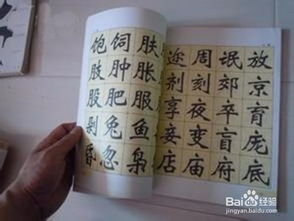 饱 饲 肤
肢 肿 胀
股 肥 服
兔 鱼
昏 忽 枭
周 氓 放
刻 郊 京
享 夜 卒 育
妾 变 盲 庞
店 庙 府 底
Baidu 经验
jingyan.baidu.com